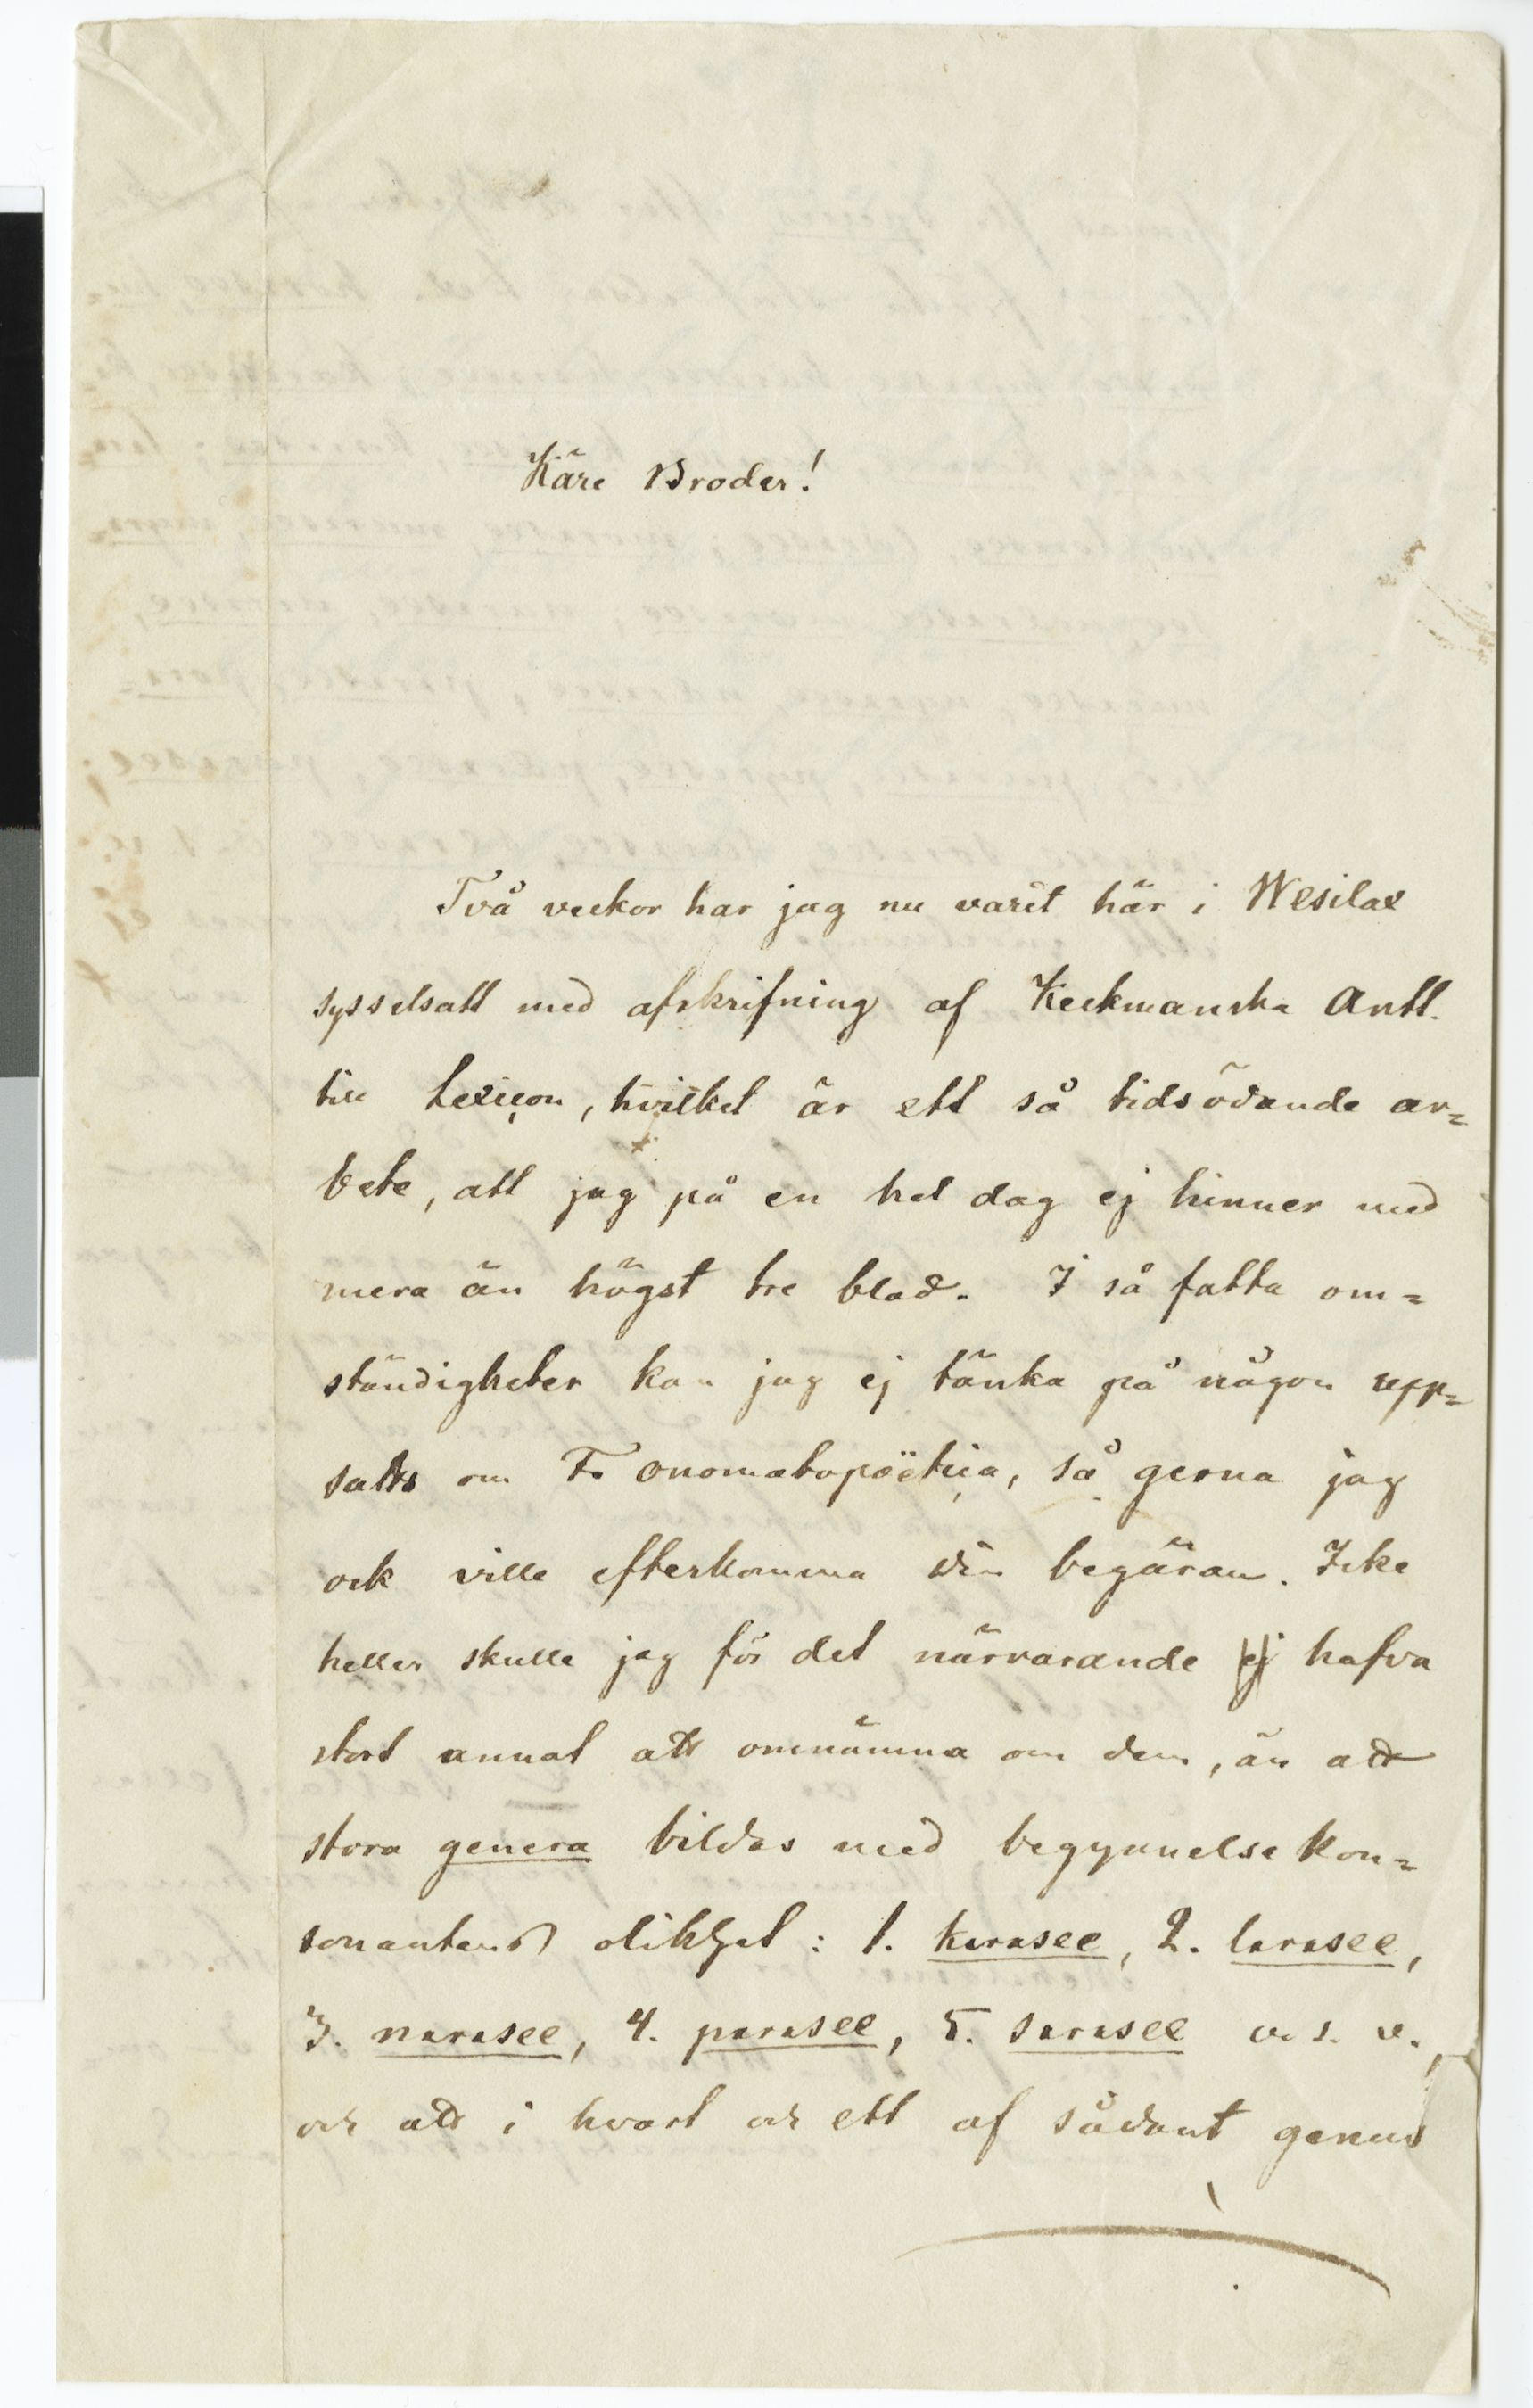 Käre Broder!
Två veckor har jag nu varit här i Wesilax
sysselsatt med afskrifning af Keckmanska Antl.
till Lexicon, hvilket är ett så tidsödande ar=
bete, att jag på en hel dag ej hinner med
mera än högst tre blad. I så fatta om=
ständigheter kan jag ej tänka på någon upp=
satts om F. onomatopoëtica, så gerna jag
ock ville efterkomma din begäran. Icke
heller skulle jag för det närvarande ej hafva
stort annat att omnämna om dem, än att
stora genera bildas med begynnelsekon=
sonantens olikhet: 1. karasee, 2. larasee,
3. narasee, 4. parasee, 5. sarasee o. s. v.,
och att i hvart och ett af sådant genus